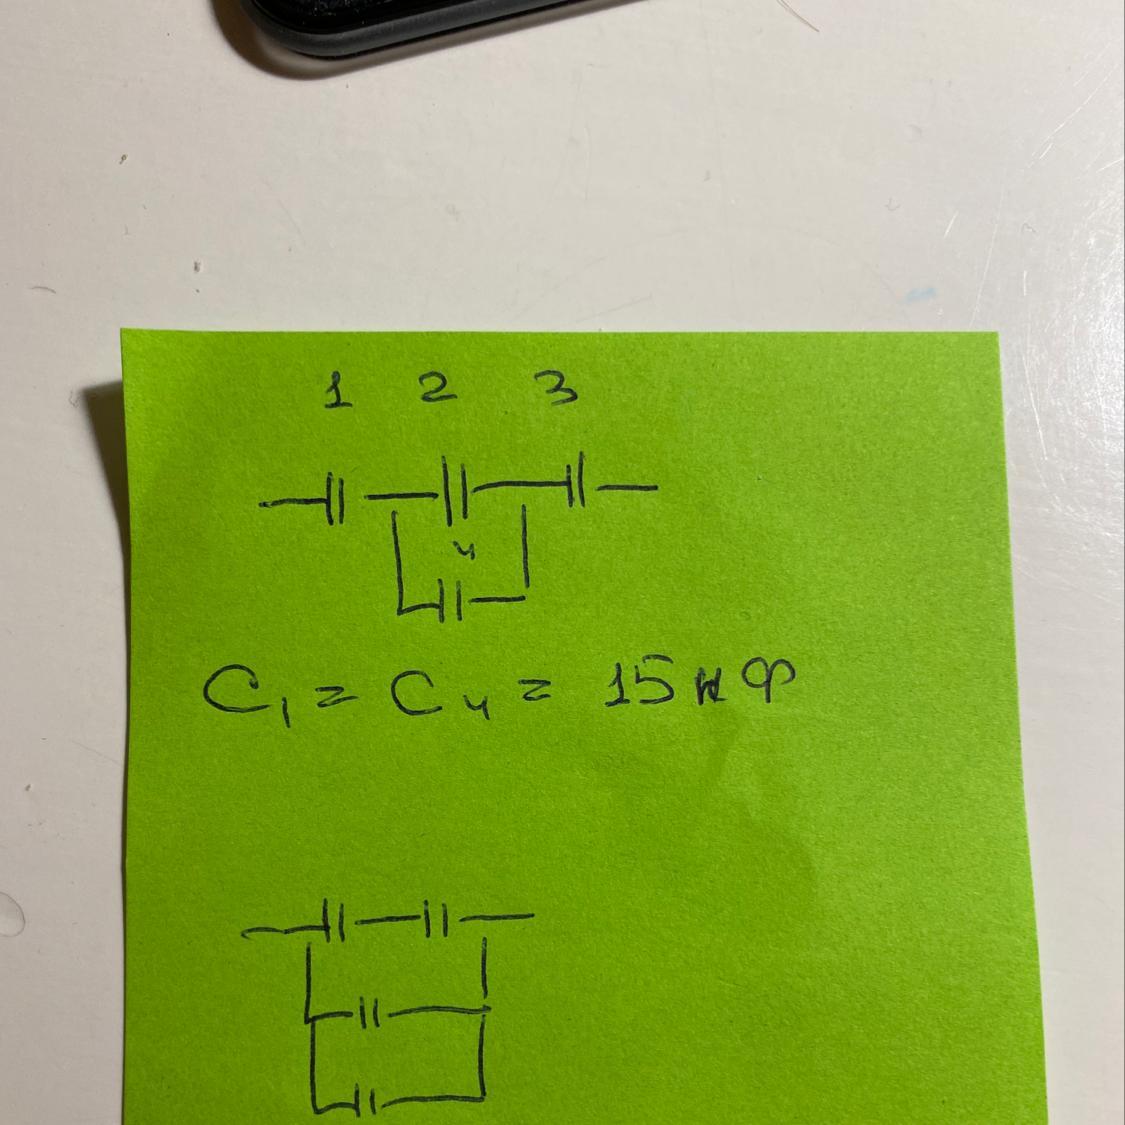 1 2 3
4
C₁ = C₄ = 15 нФ